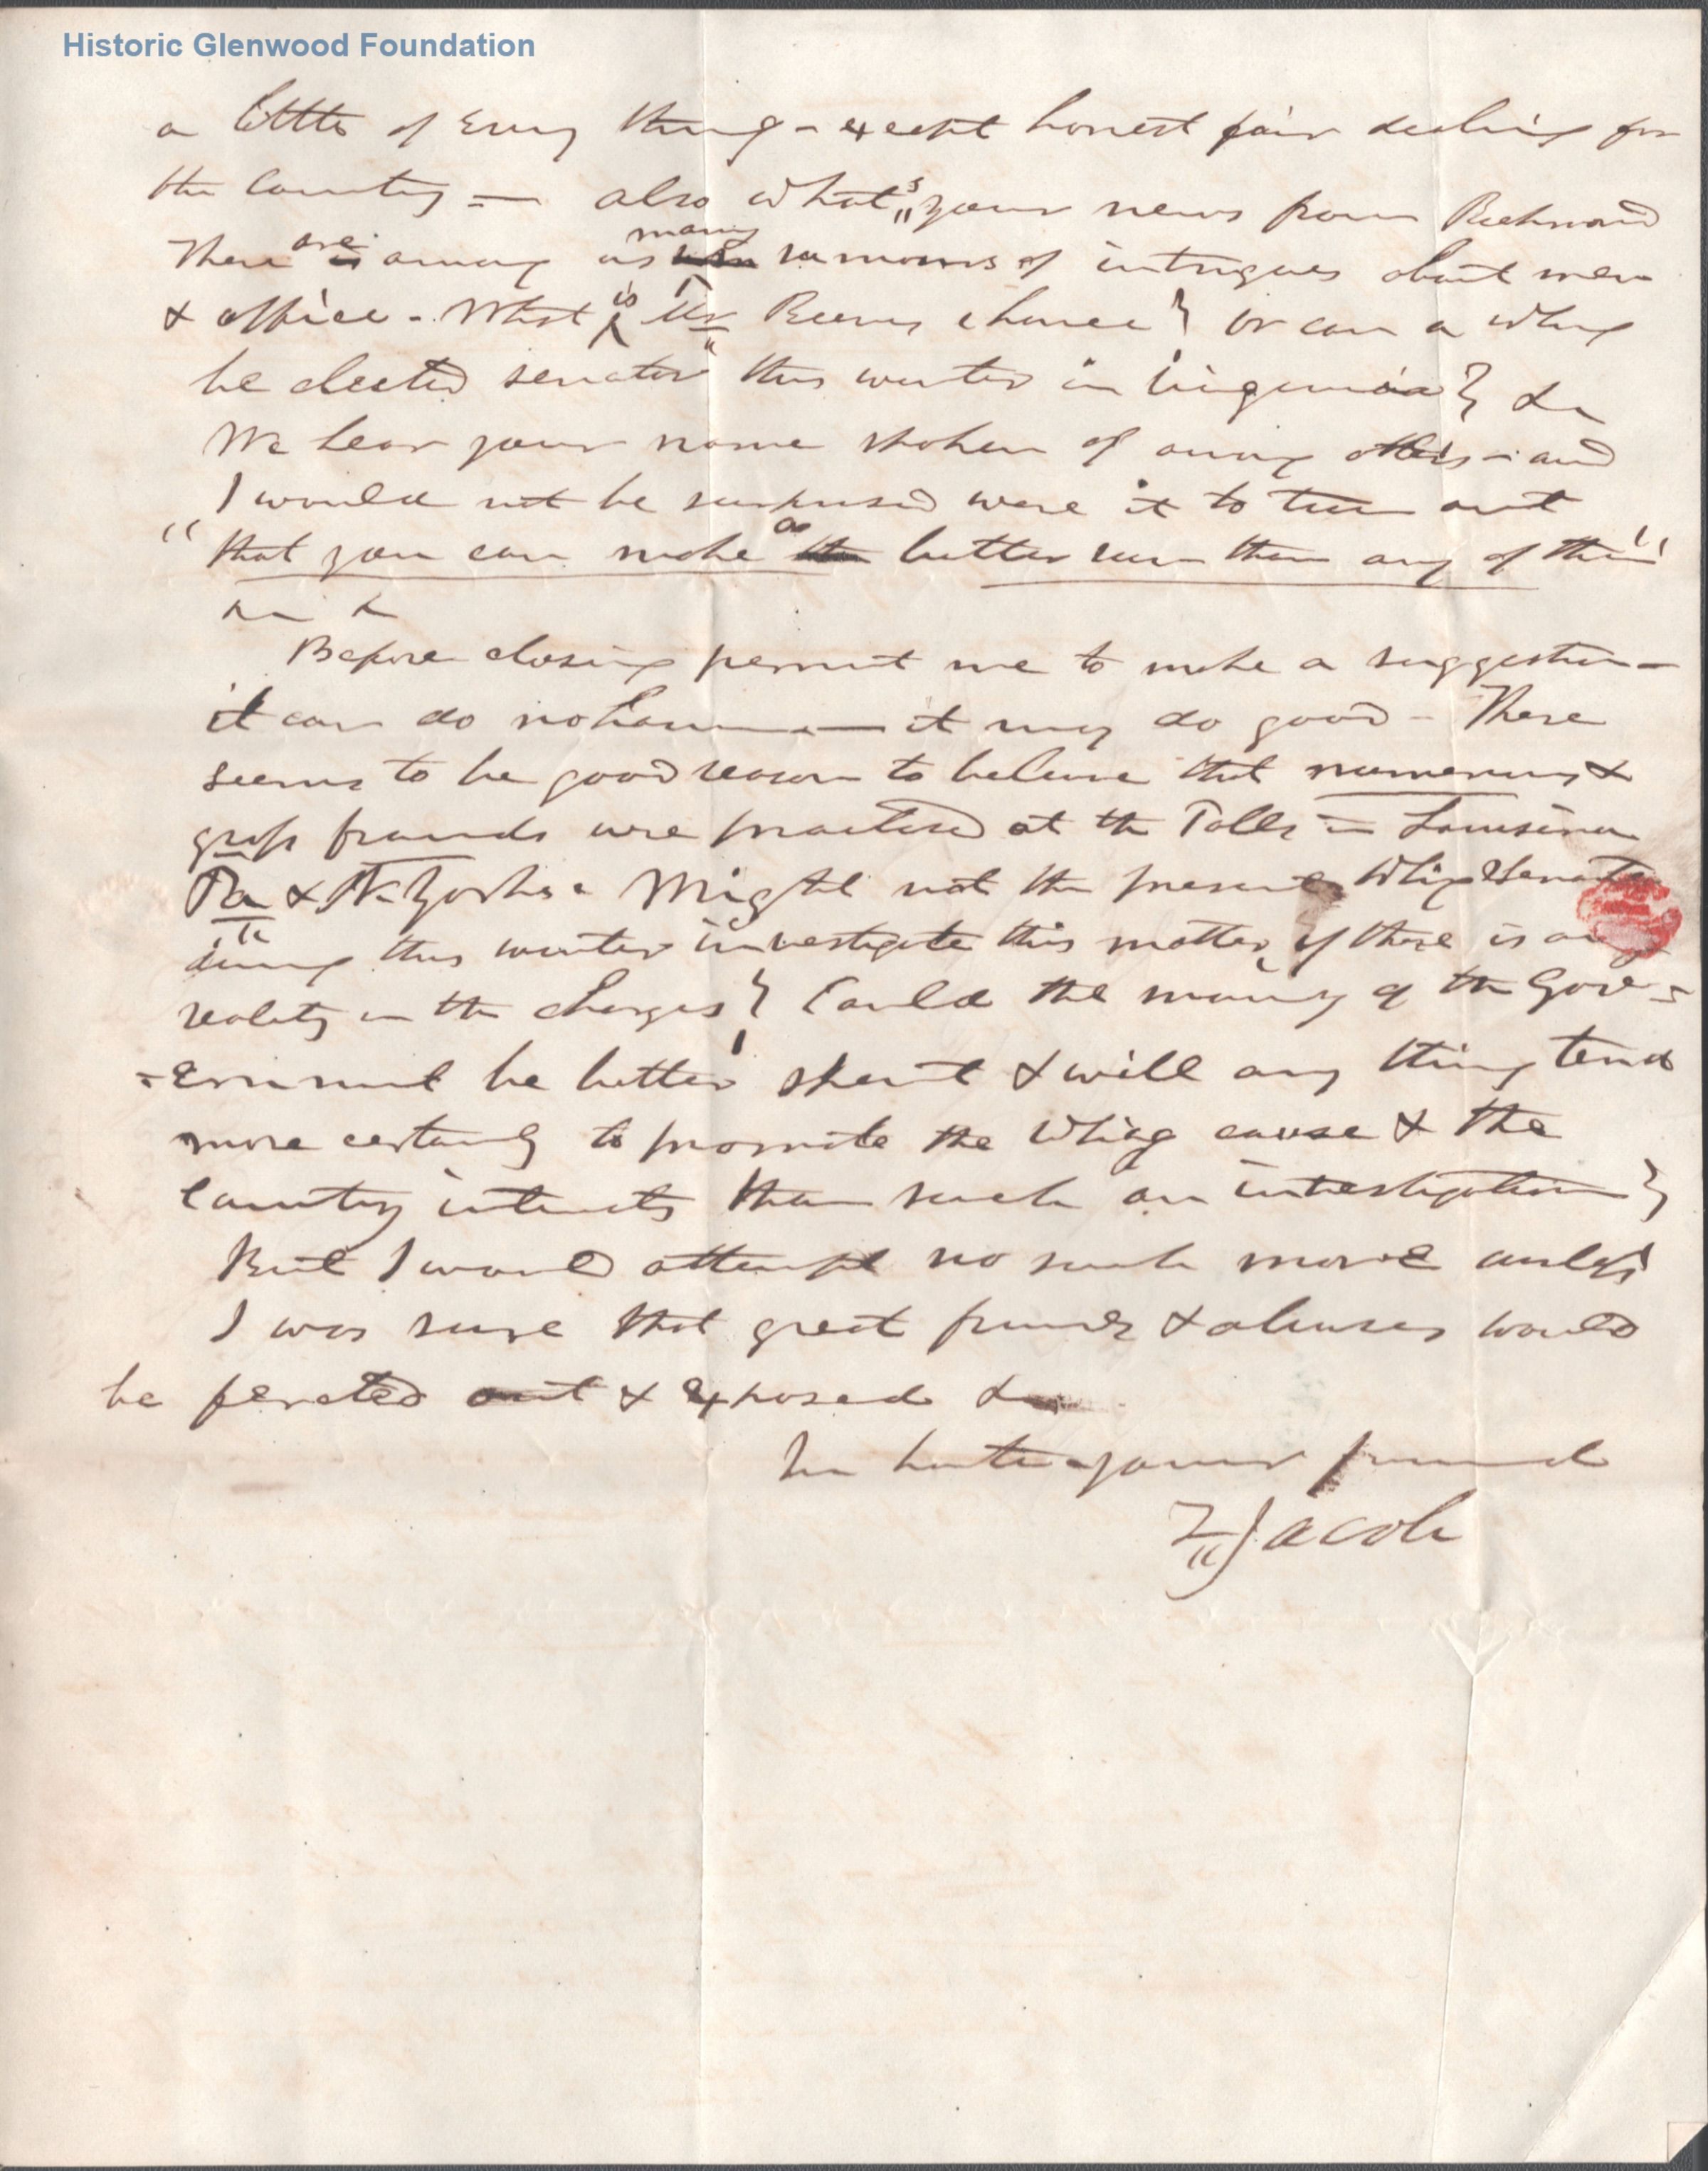 Historic Glenwood Foundation
a little of Every thing - except honest fair dealing for
the Country = also what's your news from Richmond
There are is among us many rumours of intrigues about men
& office - What is Mr Reeves chance? or can a Whig
be elected senator this winter in Virginia? &c
We hear your name spoken of among others - and
I would not be surprised were it to turn out
" that you can make a the better run than any of them "
Before closing permit me to make a suggestion -
it can do no harm - it may do good - There
seems to be good reason to believe that numerous &
gross frauds were practised at the Polls in Louisiana
Pa & N. York. Might not the present Whig Senate
during this winter investigate this matter, if there is any
reality in the charges? Could the money of the Gov-
=ernment be better spent & will any thing tend
more certainly to promote the Whig cause & the
Country interests than such an investigation?
But I would attempt no such move unless
I was sure that great frauds & abuses would
be fereted out & exposed &c
In haste your friend
Z Jacob